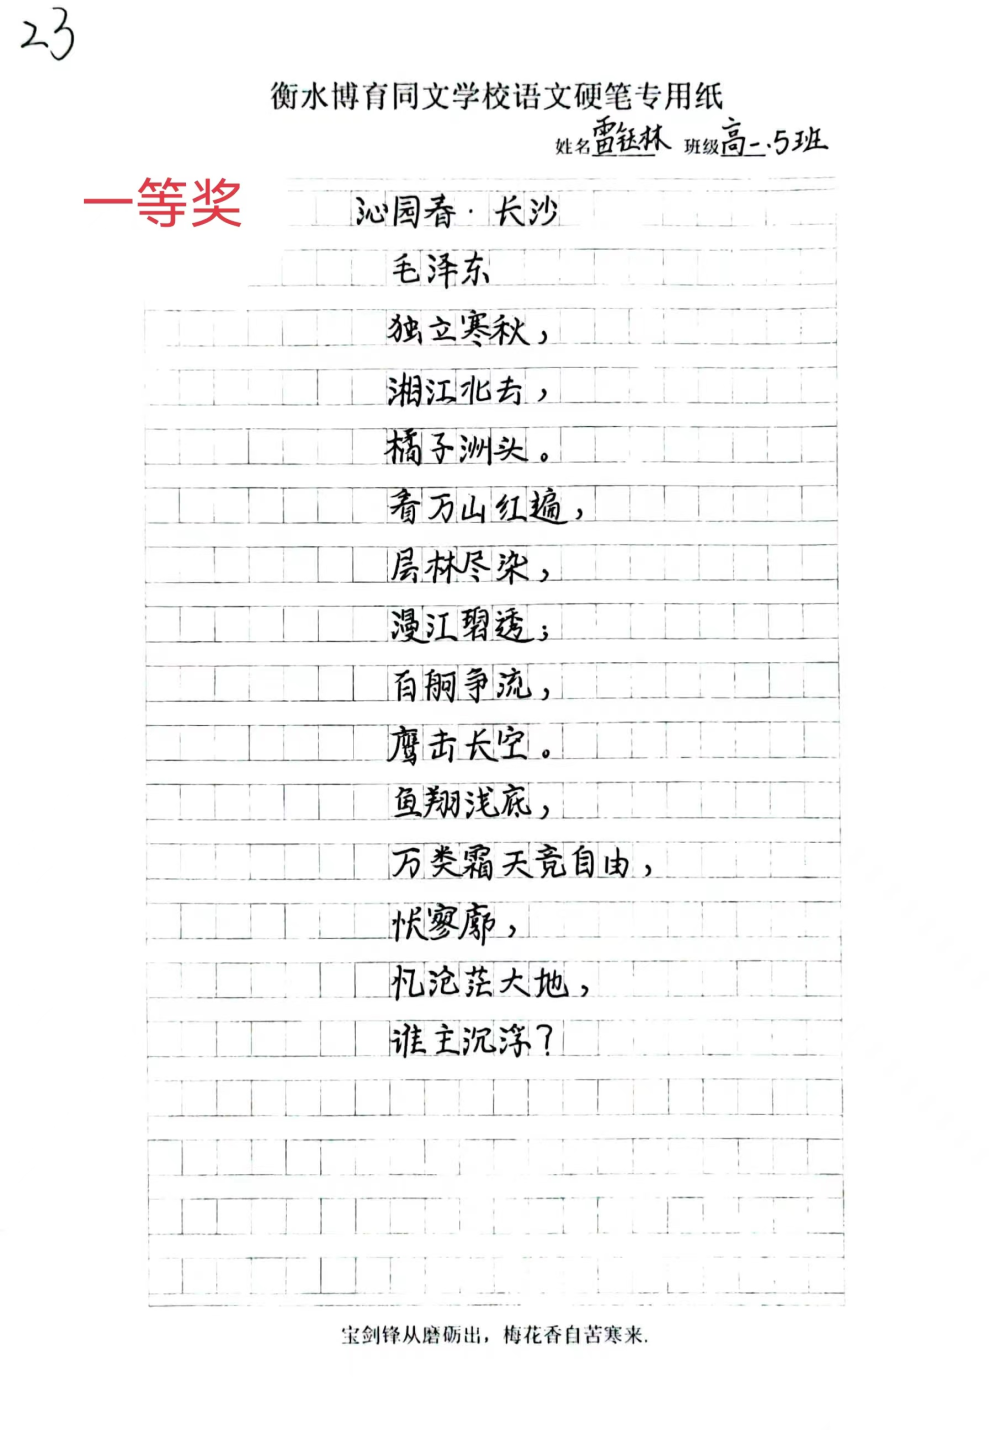 23
衡水博育同文学校语文硬笔专用纸
姓名雷钰林 班级高一.5班
一等奖
沁园春·长沙
毛泽东
独立寒秋，
湘江北去，
橘子洲头。
看万山红遍，
层林尽染，
漫江碧透；
百舸争流，
鹰击长空。
鱼翔浅底，
万类霜天竞自由，
怅寥廓，
忆沧茫大地，
谁主沉浮？
宝剑锋从磨砺出，梅花香自苦寒来.